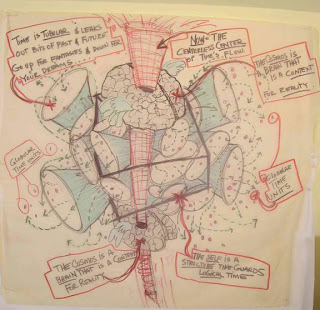 TIME IS TUBULAR & LEAKS
OUT BITS OF PAST & FUTURE
GO UP FOR FANTASIES & DOWN FOR
YOUR DREAMS
NOW = THE
CENTERLESS CENTER
OF TIME'S FLOW
THE COSMOS IS
A BRAIN THAT
IS A CONTEXT
FOR REALITY
GLOBULAR
TIME UNITS
GLOBULAR
TIME
UNITS
THE COSMOS IS A
BRAIN THAT IS A CONTEXT
FOR REALITY
THE SELF IS A
STRUCTURE THAT GUARDS
LOGICAL TIME